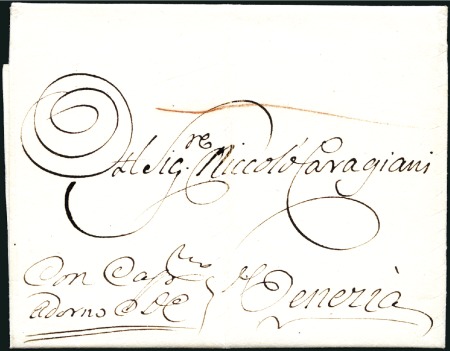 Al Sig.re Niccolò Caragiani
Con Cass
Adorno
Venezia